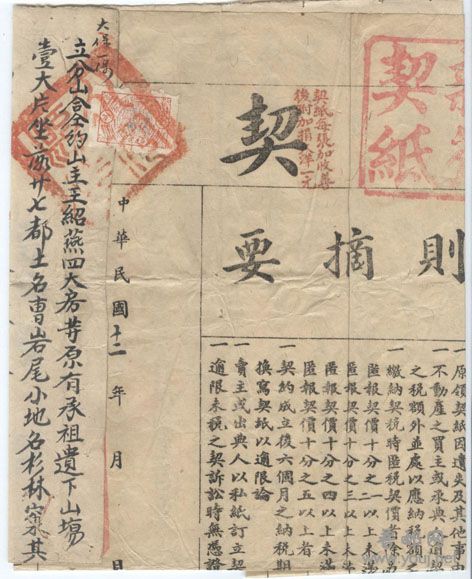 契紙
契
契紙每張加收
後附加捐洋一元
則摘要
一原領契紙因遺失及其他事
一不動產之買主或承典
之稅額外並處以應納稅額之
一繳納契稅時匿稅契價者除
匿報契價十分之一以上未滿
匿報契價十分之三以上未
匿報契價十分之四以上未滿
匿報契價十分之五以上者
一契約成立後六個月之納稅期
換寫契紙以逾限論
一賣主或出典人以私紙訂立契
一逾限未稅之契訴訟時無憑證
中華民國十二年 月 日
大保一
立分山合仝約山主王紹燕四大房等原有承祖遺下山塲
壹大片坐落廿七都土名曹岩尾小地名杉林窠其